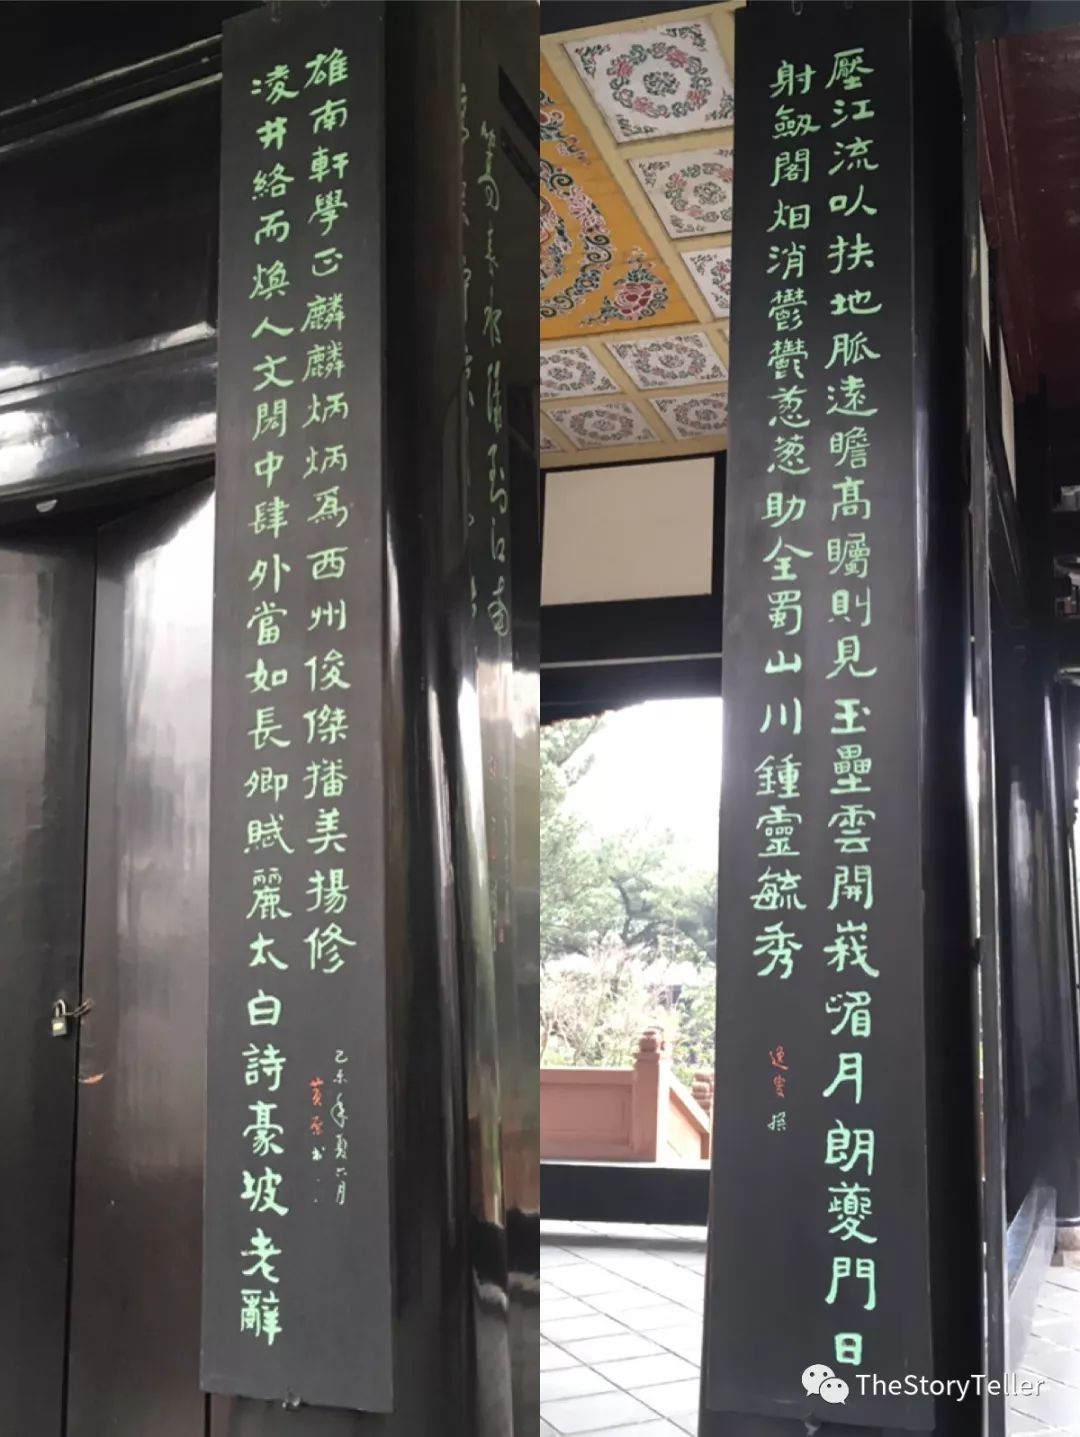 壓江流㕥扶地脈遠瞻高矚則見玉壘雲開峩嵋月朗夔門日
射劔閣烟消鬱鬱葱葱助全蜀山川鍾靈毓秀
逸叟撰
凌井絡而煥人文閎中肆外當如長卿賦麗太白詩豪坡老辭
雄南軒學正麟麟炳炳爲西州俊傑播美揚修
己未年夏六月
TheStoryTeller